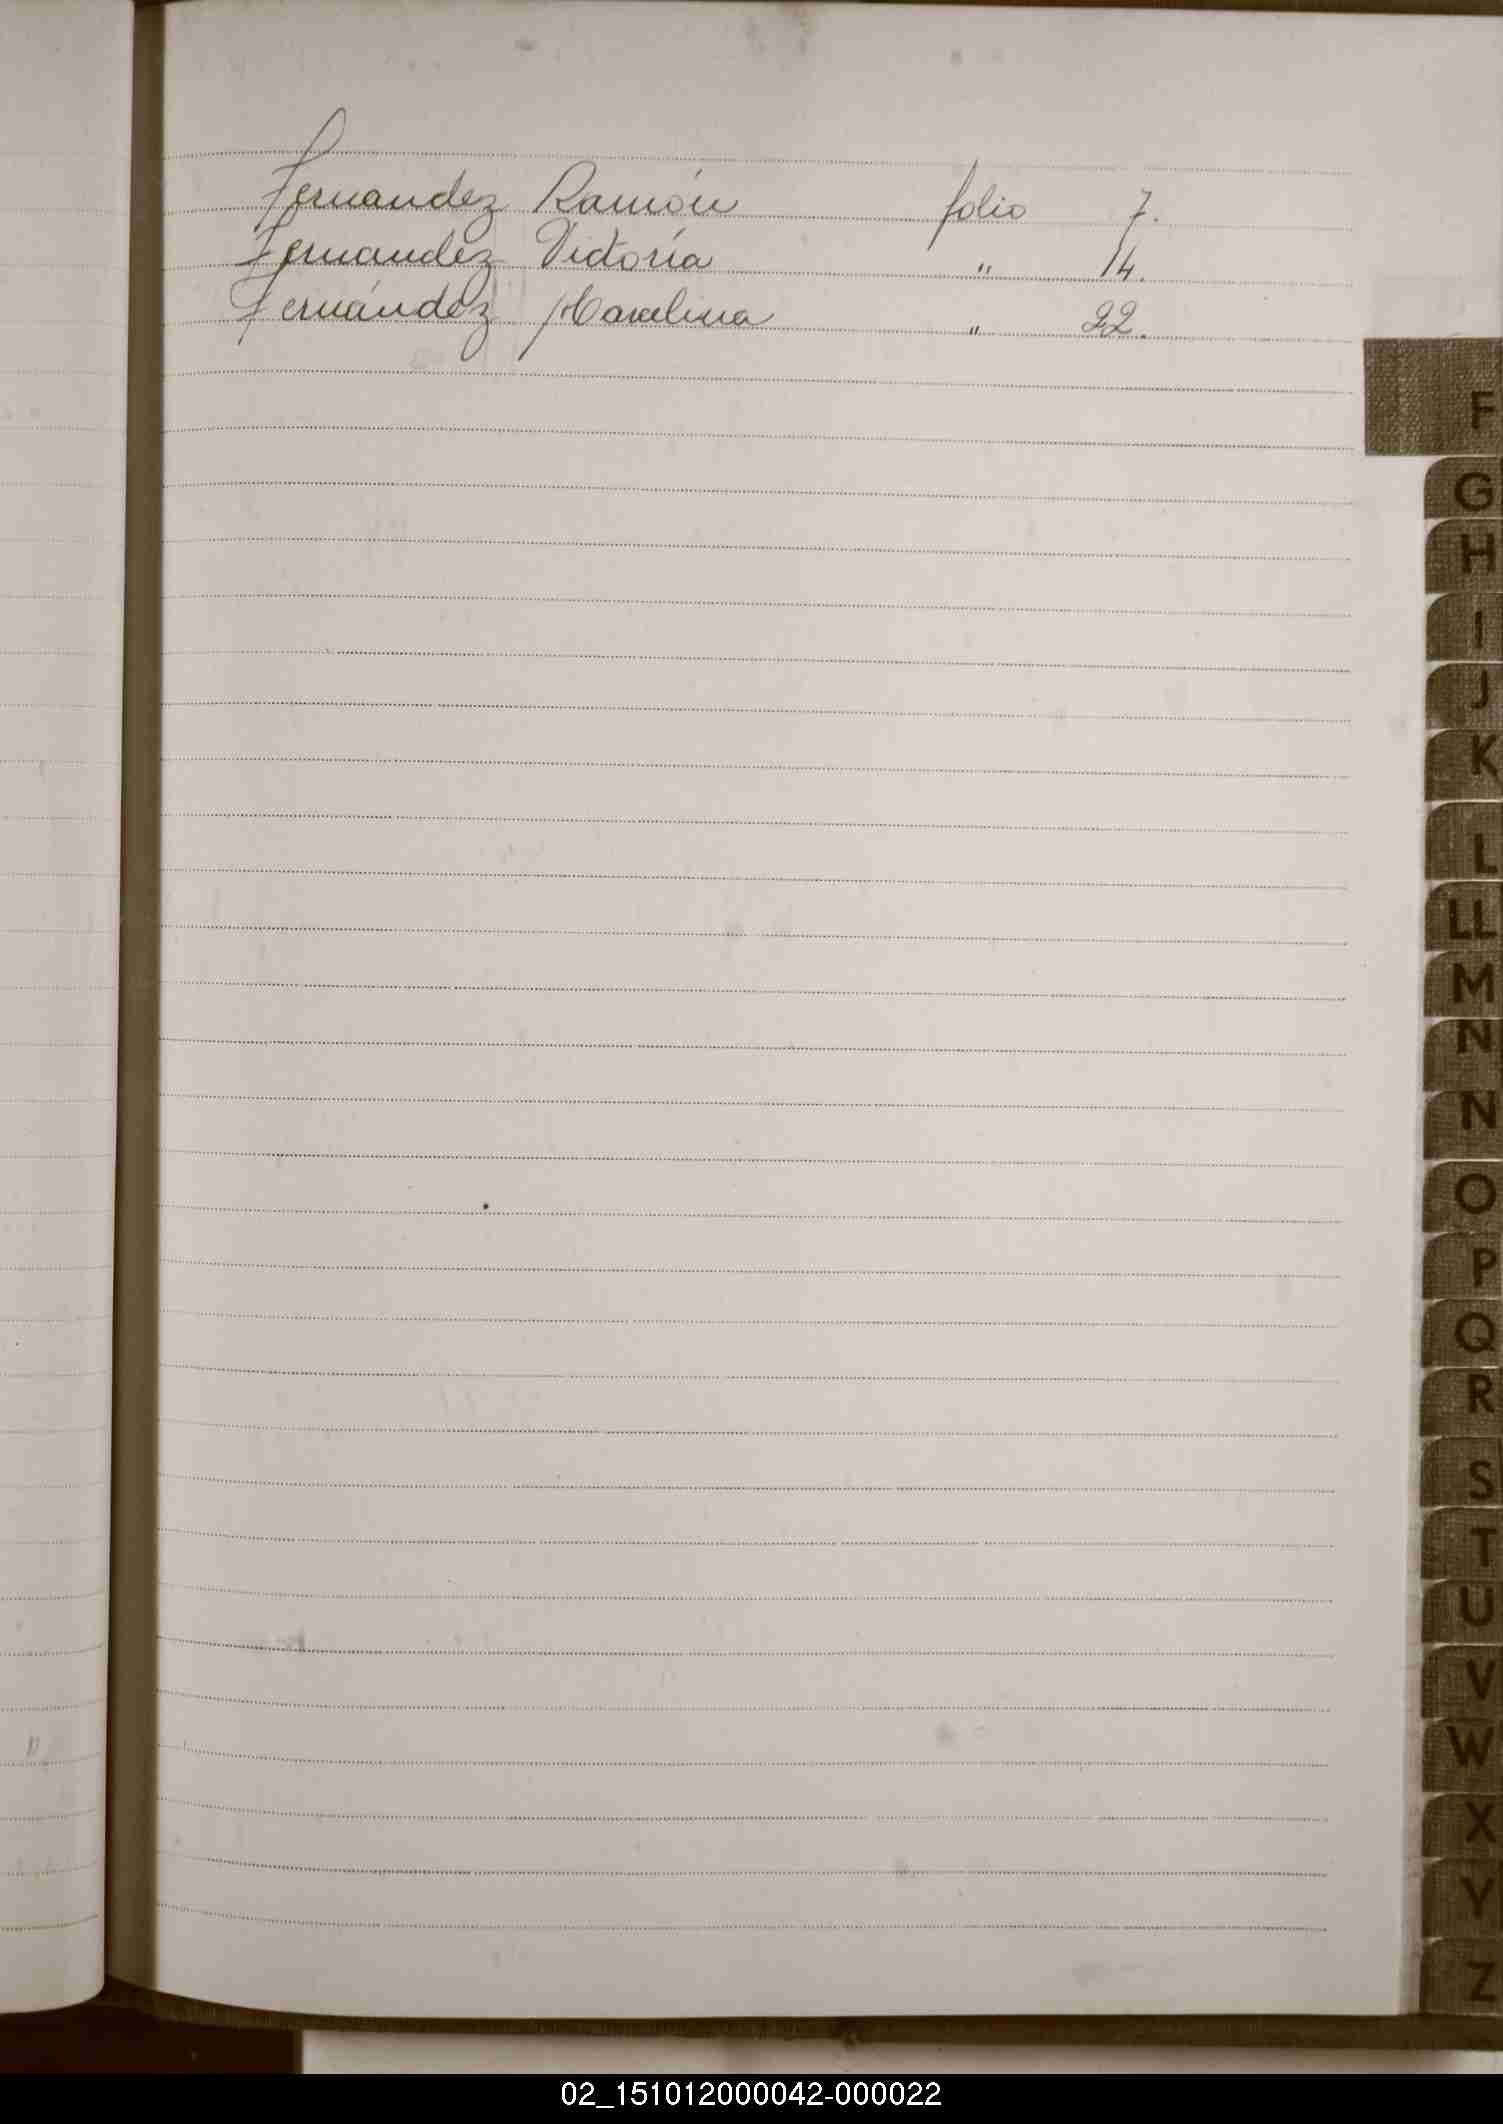 Fernandez Ramón folio 7.
Fernandez Victoría " 14.
Fernández Marcelina " 22.
F
G
H
I
J
K
L
LL
M
N
N
O
P
Q
R
S
T
U
V
W
X
Y
Z
02_151012000042-000022